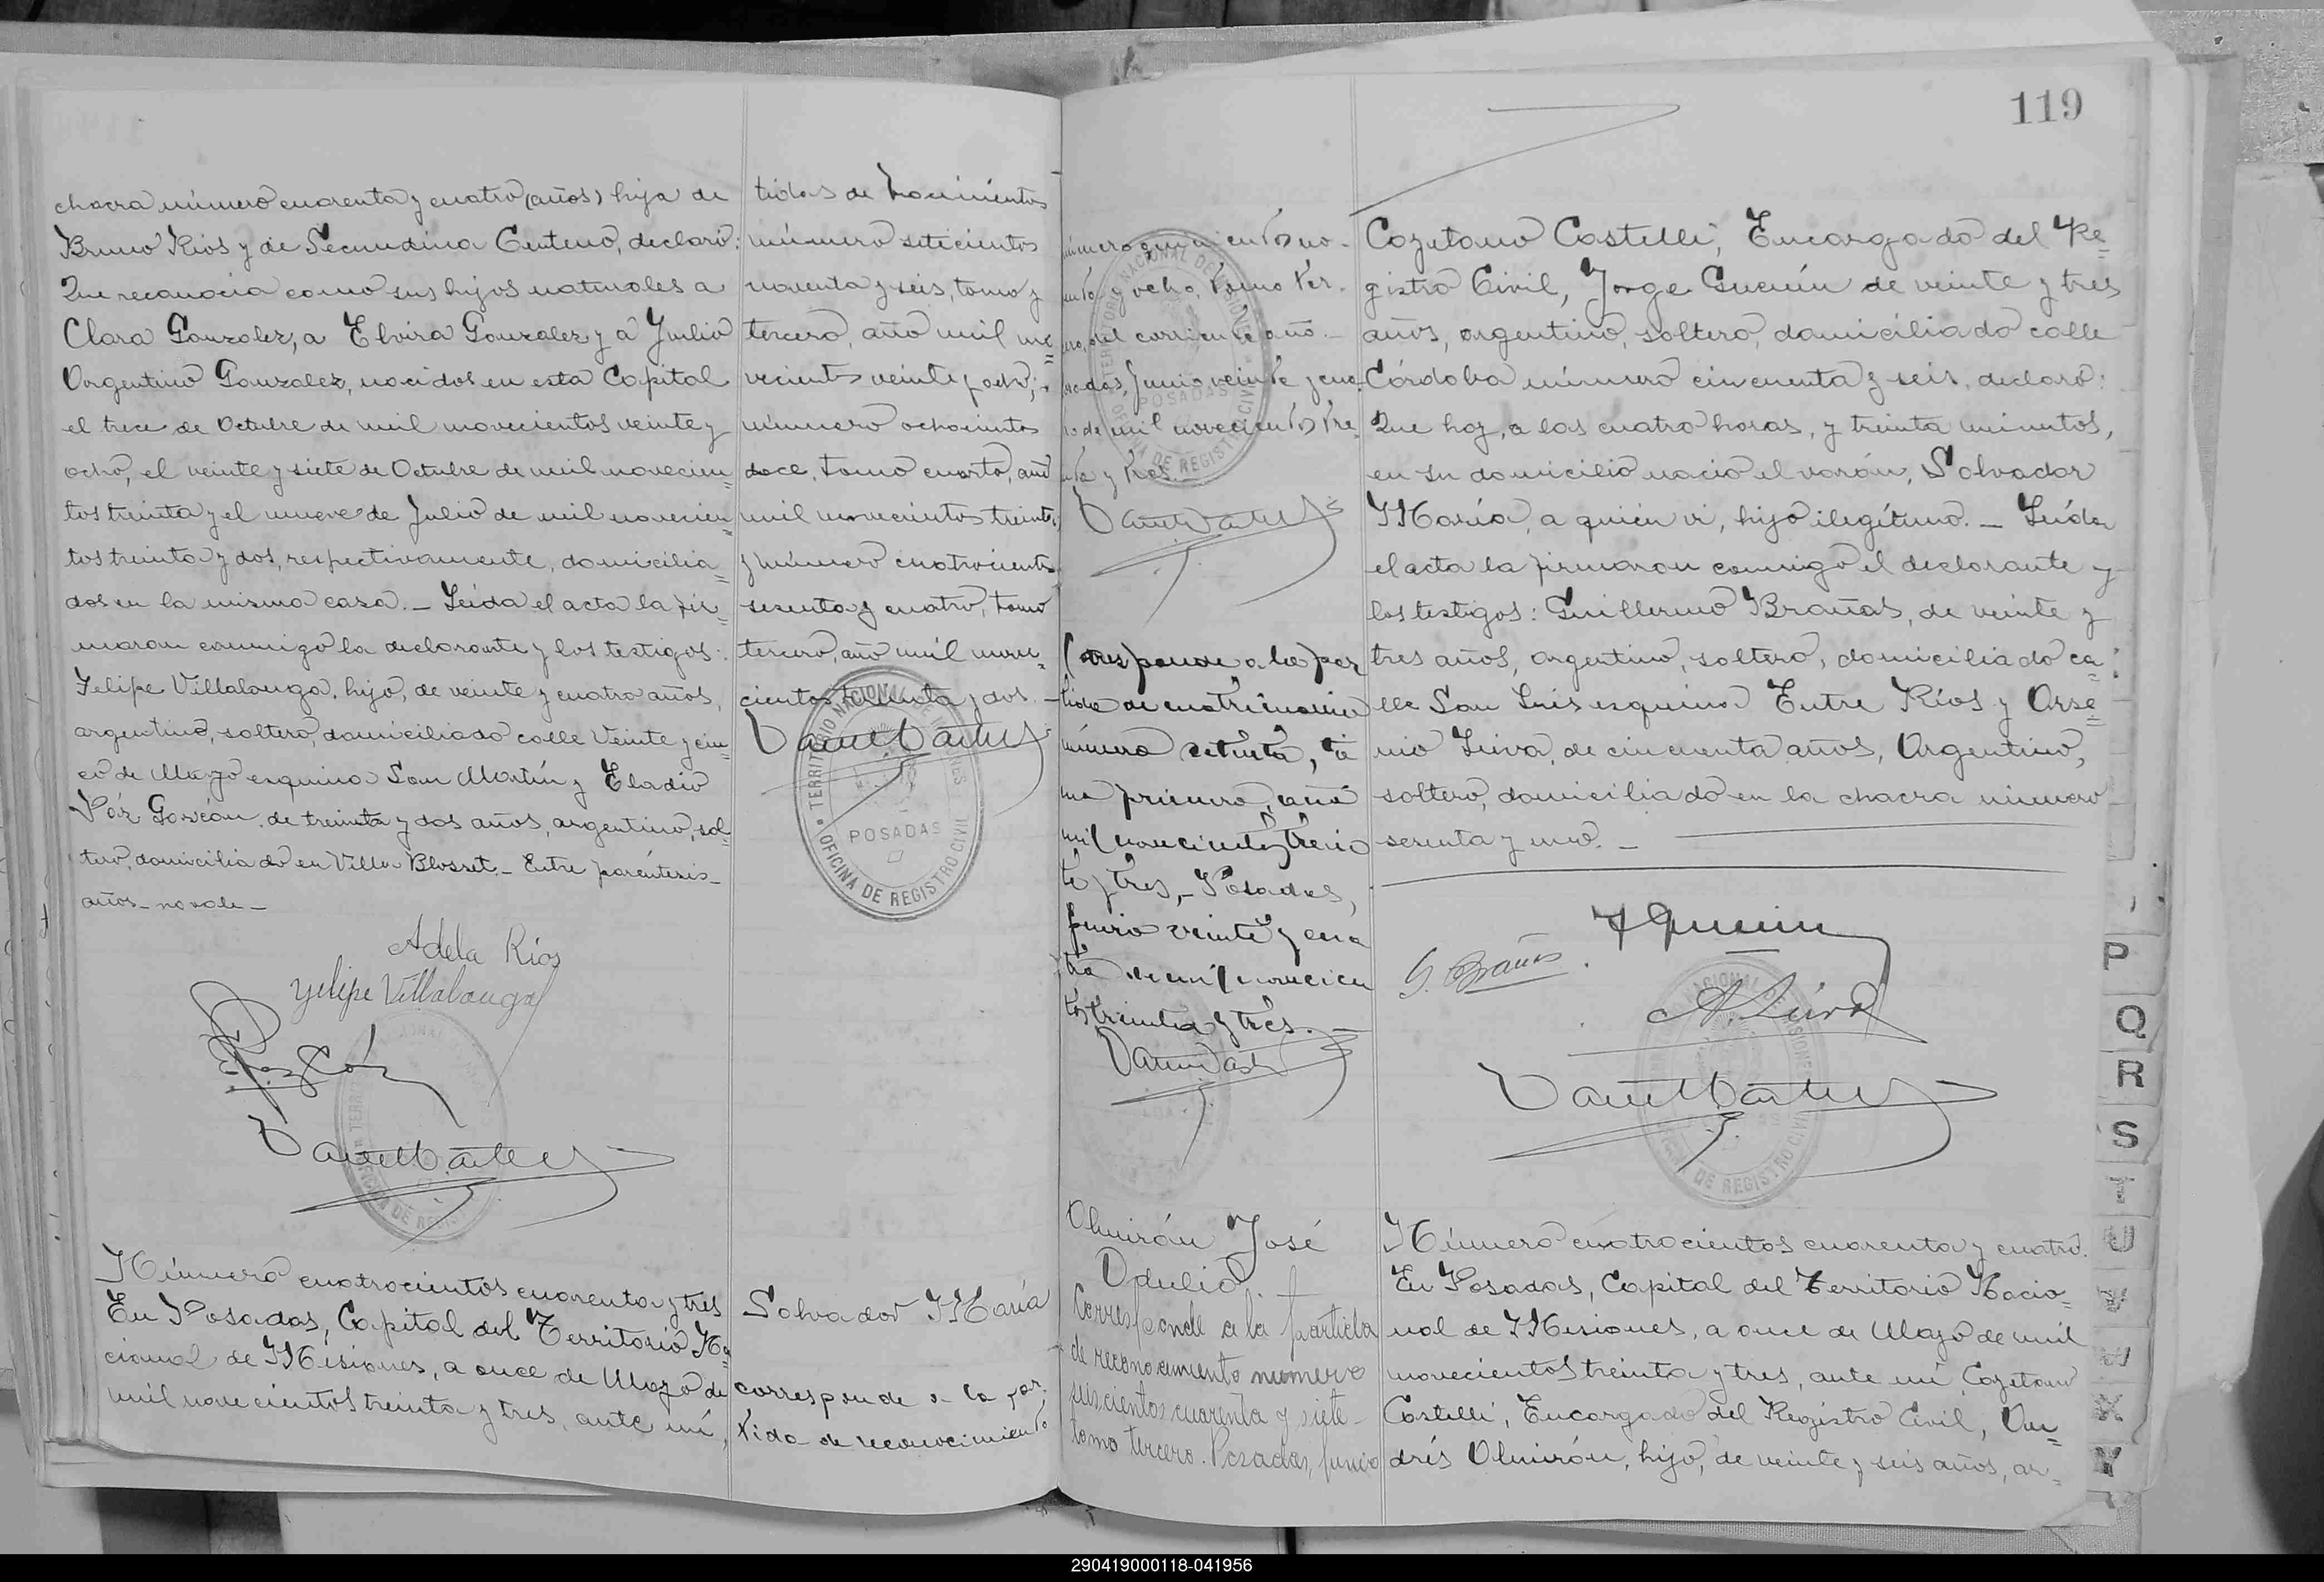 chacra número cuarenta y cuatro (años) hija de
Bruno Rios y de Secundina Centeno, declaró:
Que reconocia como sus hijos naturales a
Clara Gonzalez, a Elvira Gonzalez y a Julio
Argentino Gonzalez, nacidos en esta Capital
el trece de Octubre de mil novecientos veinte y
ocho, el veinte y siete de Octubre de mil novecien=
tos treinta y el nueve de Julio de mil novecien=
tos treinta y dos, respectivamente, domicilia=
dos en la misma casa. _ Leída el acta la fir=
maron conmigo la declarante y los testigos:
Felipe Villalonga, hijo, de veinte y cuatro años,
argentino, soltero, domiciliado calle Veinte y cin=
co de Mayo esquina San Martín y Eladio
de treinta y dos años, argentino, sol=
tero, domiciliado en Villa Blosset. _ Entre paréntesis_
años_ no vale_
Adela Rios
Felipe Villalonga
Número cuatrocientos cuarenta y tres
En Posadas, Capital del Territorio Na=
cional de Misiones, a once de Mayo de
mil novecientos treinta y tres, ante mí,
tidas de nacimientos
número setecientos
noventa y seis, tomo
tercero, año mil no=
vecientos veinte y ocho;
número ochocientos
doce, tomo cuarto, año
mil novecientos treinta,
y número cuatrocientos
sesenta y cuatro, tomo
tercero, año mil nove=
cientos treinta y dos. _
TERRITORIO NACIONAL DE MISIONES
POSADAS
OFICINA DE REGISTRO CIVIL
Salvador María
corresponde a la par
tida de reconocimiento
número quinientos no-
venta y ocho, tomo ter.
cero, del corriente año._
Posadas, Junio veinte y cua-
tro de mil novecientos tre
inta y tres._
Corresponde a la par
tida de matrimonio
número setenta, to
mo primero, año
mil novecientos trein
ta y tres, _ Posadas,
junio veinte y cua
tro de mil novecien
tos treinta y tres. _
Almirón José
Odulio. _
Corresponde a la partida
de reconocimiento numero
seiscientos cuarenta y siete_
tomo tercero. Posadas, junio
119
Cayetano Castelli, Encargado del Re=
gistro Civil, Jorge Guenin de veinte y tres
años, argentino, soltero, domiciliado calle
Córdoba número cincuenta y seis, declaró:
Que hoy, a las cuatro horas, y treinta minutos,
en su domicilio nació el varón, Salvador
María, a quien vi, hijo ilegítimo. _ Leída
el acta la firmaron conmigo el declarante y
los testigos: Guillermo Brañas, de veinte y
tres años, argentino, soltero, domiciliado ca=
lle San Luis esquina Entre Ríos y Arse=
nio Leiva, de cincuenta años, Argentino,
soltero, domiciliado en la chacra número
sesenta y uno. _
J Guenin
G. Brañas.
A. Leiva
Número cuatrocientos cuarenta y cuatro.
En Posadas, Capital del Territorio Nacio=
nal de Misiones, a once de Mayo de mil
novecientos treinta y tres, ante mí Cayetano
Castelli, Encargado del Registro Civil, An=
drés Almirón, hijo, de veinte y seis años, ar=
P
Q
R
S
T
U
V
W
X
Y
290419000118-041956